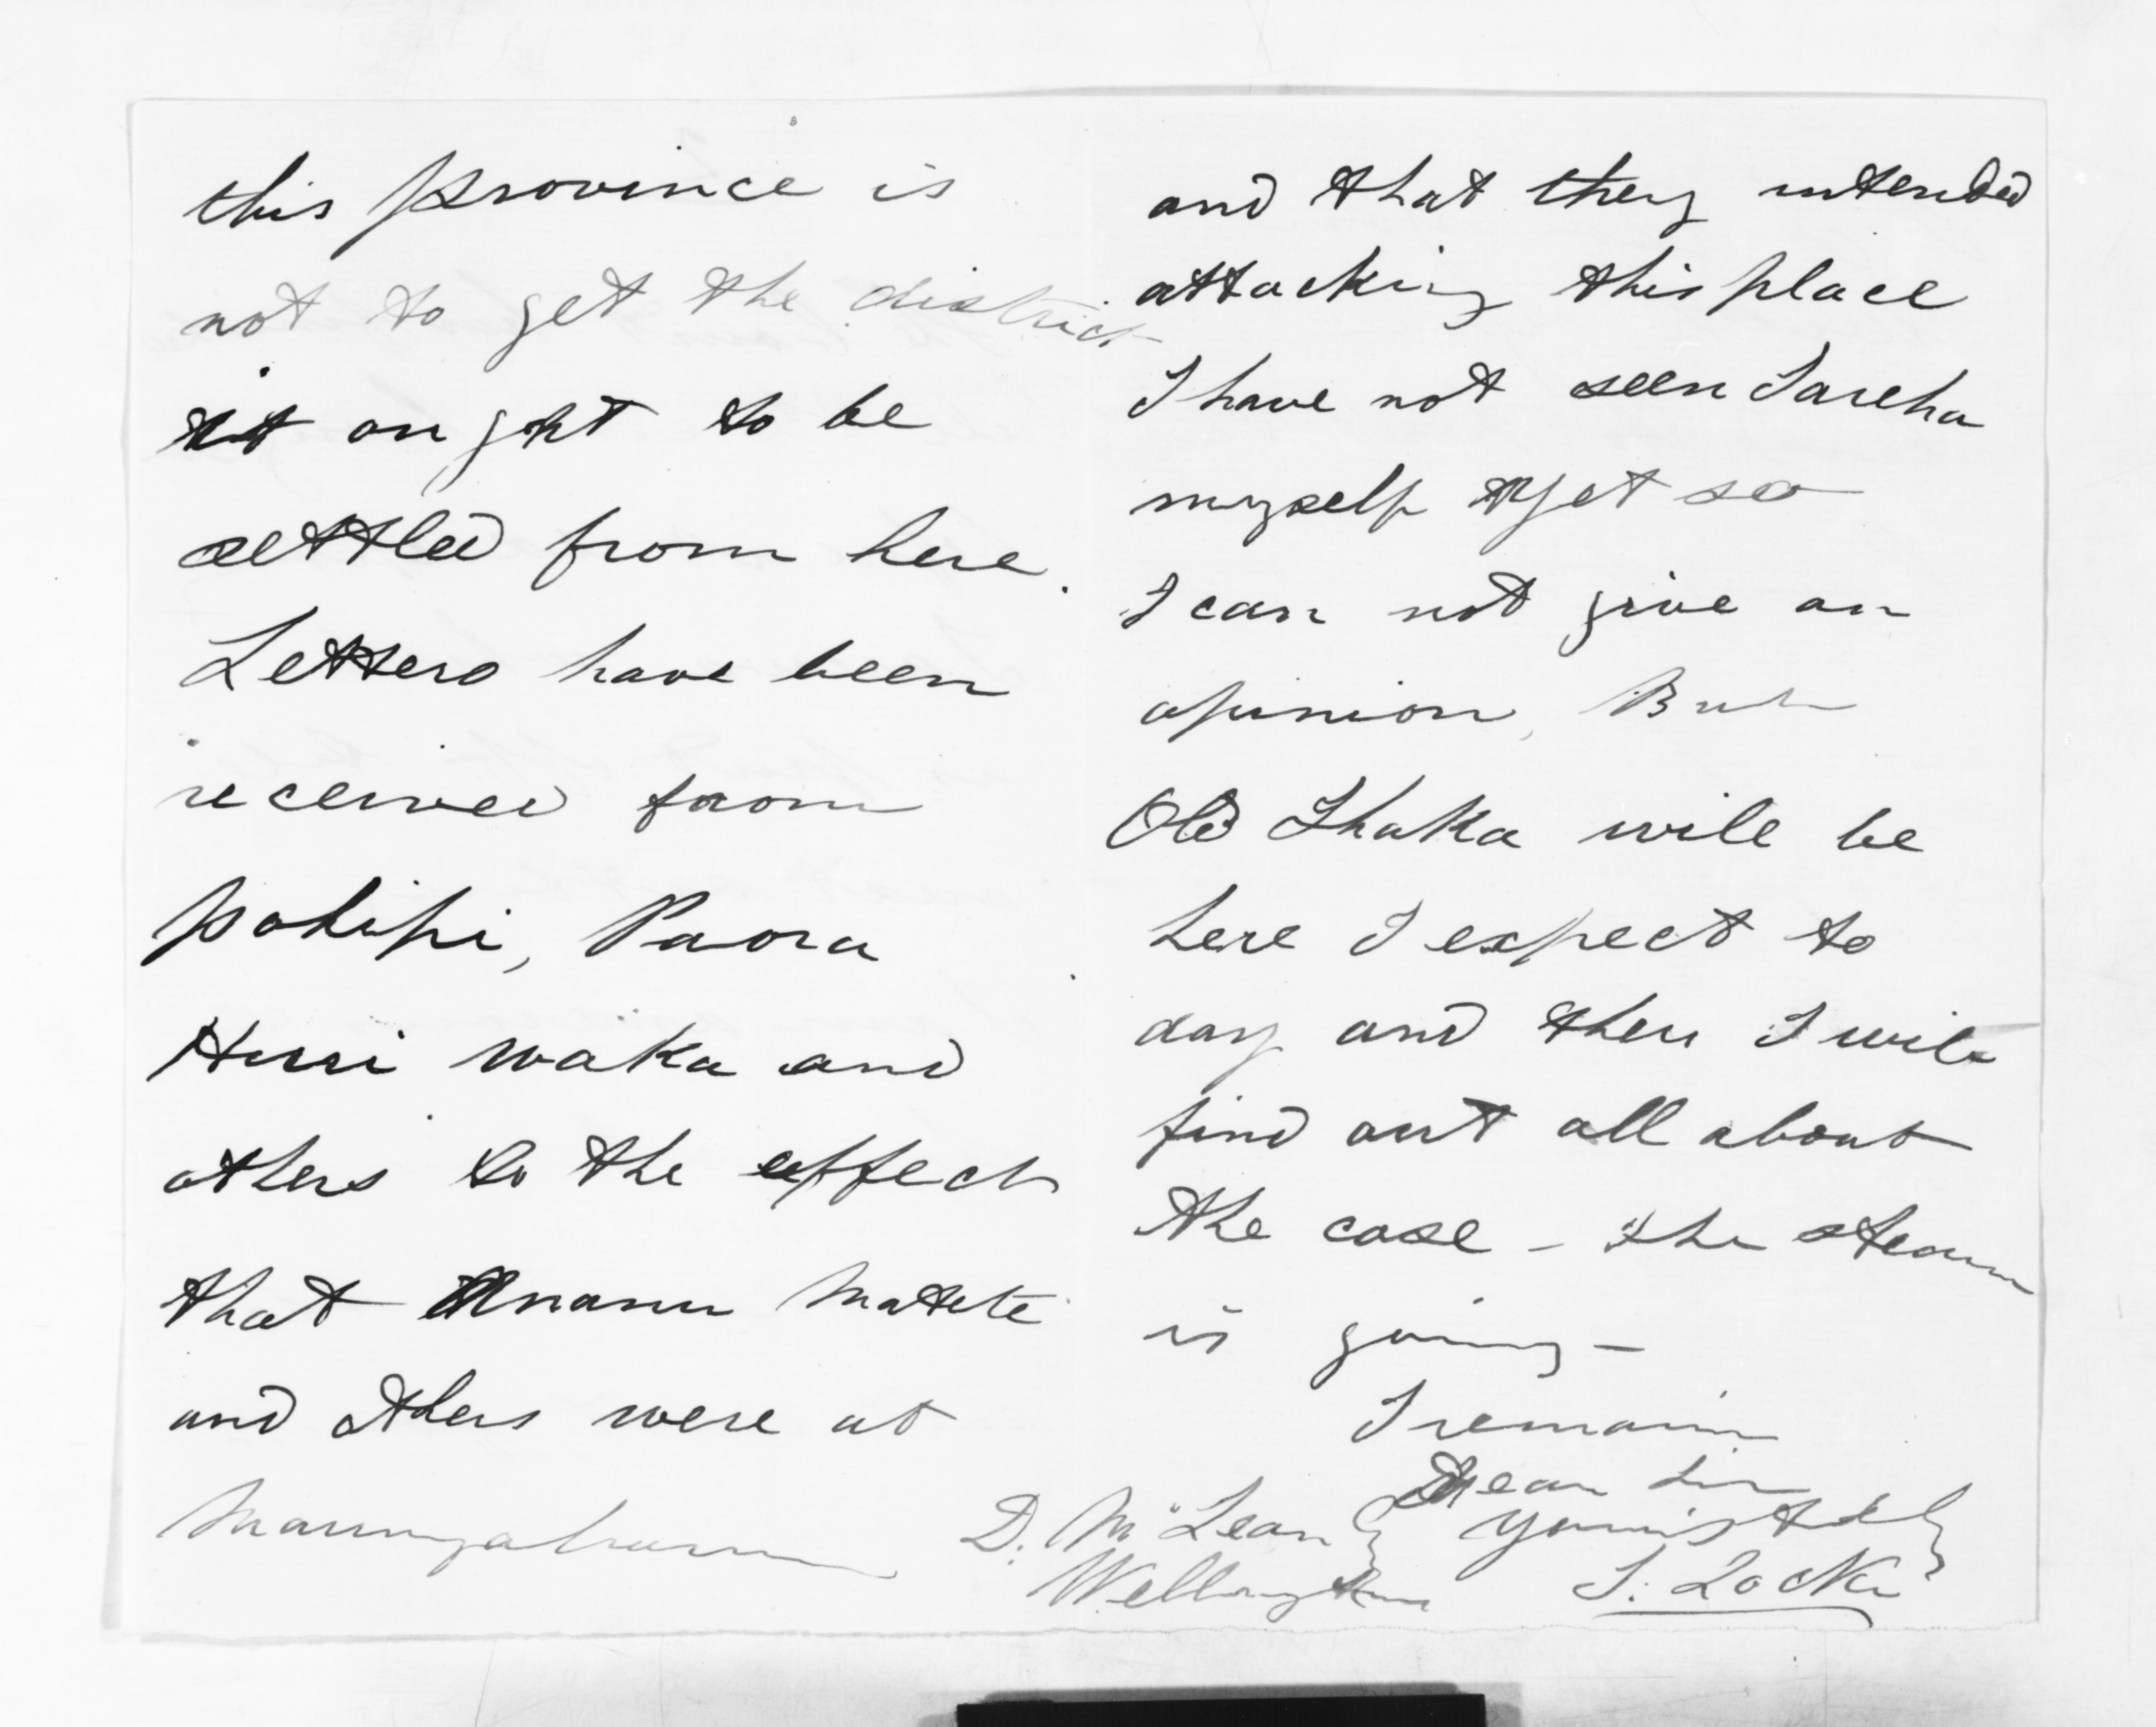 this province is
not to get the district
it ought to be
settled from here.
Letters have been
received from
Pohipi, Paora
Huri waka and
others to the effect
that Anaru Matete
and others were at
Maungaharuru
and that they intended
attacking this place
I have not seen Tareha
myself yet so
I can not give an
opinion, But
Old Ihaka will be
here I expect to
day and then I will
find out all about
the case - the steam
is going -
I remain
Dear Sir
Yours truly
S. Locke
D. McLean
Wellington